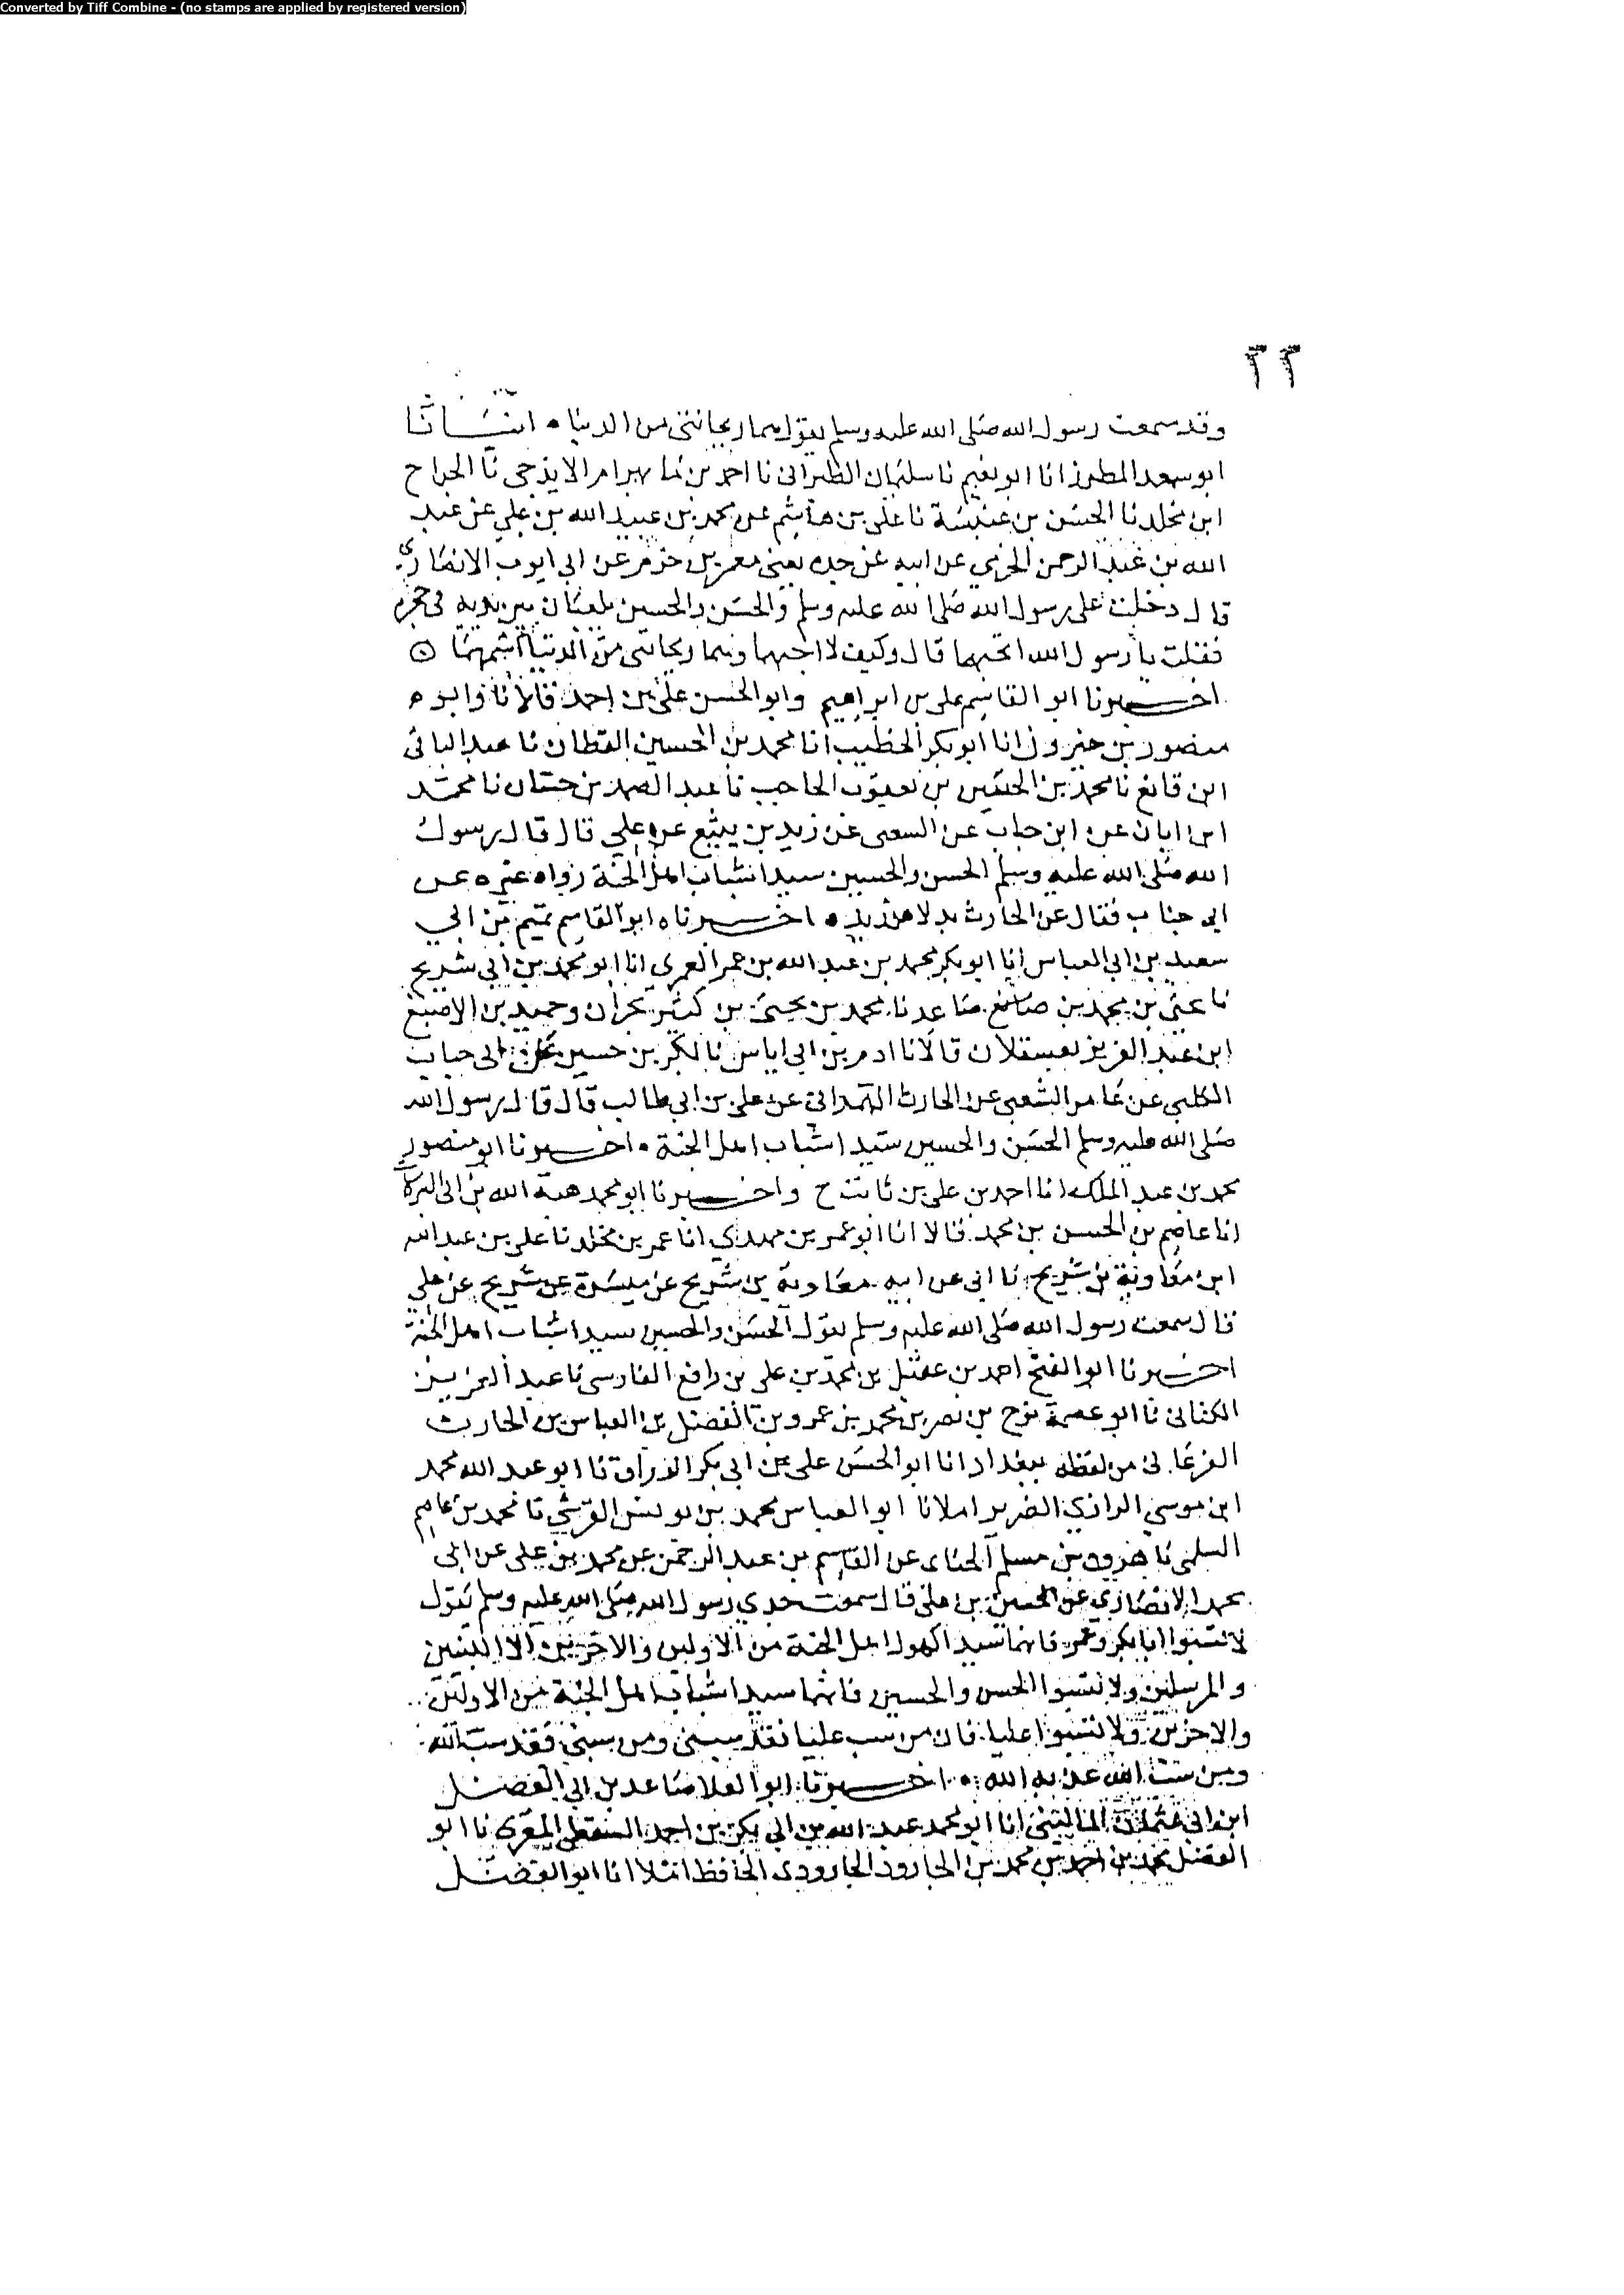 Converted by Tiff Combine - (no stamps are applied by registered version)
٢٢
وقد سمعت رسول الله صلى الله عليه وسلم يقول هما ريحانتي من الدنيا ٥ انبأنا
ابو سعد المطرز انا ابو نعيم نا سليمان الطبراني نا احمد بن بهرام الايذجي نا الجراح
ابن مخلد نا الحسن بن عنبسة نا علي بن هاشم عن محمد بن عبيد الله بن علي عن عبد
الله بن عبد الرحمن الحزمي عن ابيه عن جده يعني معمر بن حزم عن ابي ايوب الانصاري
قال دخلت على رسول الله صلى الله عليه وسلم والحسن والحسين يلعبان بين يديه في حجره
فقلت يا رسول الله اتحبهما قال وكيف لا احبهما وهما ريحانتي من الدنيا اشمهما ٥
اخبرنا ابو القاسم علي بن ابراهيم وابو الحسن علي بن احمد قالا نا وابو
منصور بن خيرون انا ابو بكر الخطيب انا محمد بن الحسين القطان نا عبد الباقي
ابن قانع نا محمد بن الحسين بن يعقوب الحاجب نا عبد الصمد بن حسان نا محمد
ابن ابان عن ابن جناب عن الشعبي عن زيد بن يثيع عن علي قال قال رسول
الله صلى الله عليه وسلم الحسن والحسين سيدا شباب اهل الجنة رواه غيره عن
ابي جناب فقال عن الحارث بدلا من زيد ٥ اخبرناه ابو القاسم تميم بن ابي
سعيد بن ابي العباس انا ابو بكر محمد بن عبد الله بن عمر العمري انا ابو محمد بن ابي شريح
نا يحيى بن محمد بن صاعد نا محمد بن يحيى بن كثير بحران وحميد بن الاصبغ
ابن عبد العزيز بعسقلان قالا نا ادم بن ابي اياس نا بكر بن حسين عن ابي جناب
الكلبي عن عامر الشعبي عن الحارث الهمداني عن علي بن ابي طالب قال قال رسول الله
صلى الله عليه وسلم الحسن والحسين سيدا شباب اهل الجنة ٥ اخبرنا ابو منصور
محمد بن عبد الملك انا احمد بن علي بن ثابت ح واخبرنا ابو محمد هبة الله بن ابي البركات
انا عاصم بن الحسن بن محمد قالا انا ابو عمر بن مهدي انا عمر بن مخلد نا علي بن عبد الله
ابن معاوية بن شريح نا ابي عن ابيه معاوية بن شريح عن ميسرة عن شريح عن علي
قال سمعت رسول الله صلى الله عليه وسلم يقول الحسن والحسين سيدا شباب اهل الجنة
اخبرنا ابو الفتح احمد بن عقيل بن محمد بن علي بن رافع الفارسي نا عبد العزيز
الكتاني نا ابو عصمة نوح بن نصر بن محمد بن عمرو بن الفضل بن العباس بن الحارث
الفرغاني من لفظه ببغداد انا ابو الحسن علي بن ابي بكر الوراق نا ابو عبد الله محمد
ابن موسى الرازي الضرير املا نا ابو العباس محمد بن يونس القرشي نا محمد بن عامر
السلمي نا هرون بن مسلم الحنائي عن القاسم بن عبد الرحمن عن محمد بن علي عن ابي
محمد الانصاري عن الحسين بن علي قال سمعت جدي رسول الله صلى الله عليه وسلم يقول
لا تسبوا ابا بكر وعمر فانهما سيدا كهول اهل الجنة من الاولين والاخرين الا النبيين
والمرسلين ولا تسبوا الحسن والحسين فانهما سيدا شباب اهل الجنة من الاولين
والاخرين ولا تسبوا عليا فان من سب عليا فقد سبني ومن سبني فقد سب الله
ومن سب الله عذبه الله ٥ اخبرنا ابو العلا صاعد بن ابي الفضل
ابن ابي عثمان الماليني انا ابو محمد عبد الله بن ابي بكر بن احمد السقطي المقرئ نا ابو
الفضل محمد بن احمد بن محمد بن الجارود الجارودي الحافظ املا انا ابو الفضل